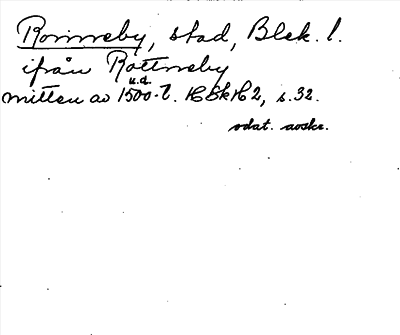 Ronneby, stad, Blek. l.
ifrån Rottneby
u.d.
mitten av 1500-t. HSkH2, s. 32.
odat. avskr.